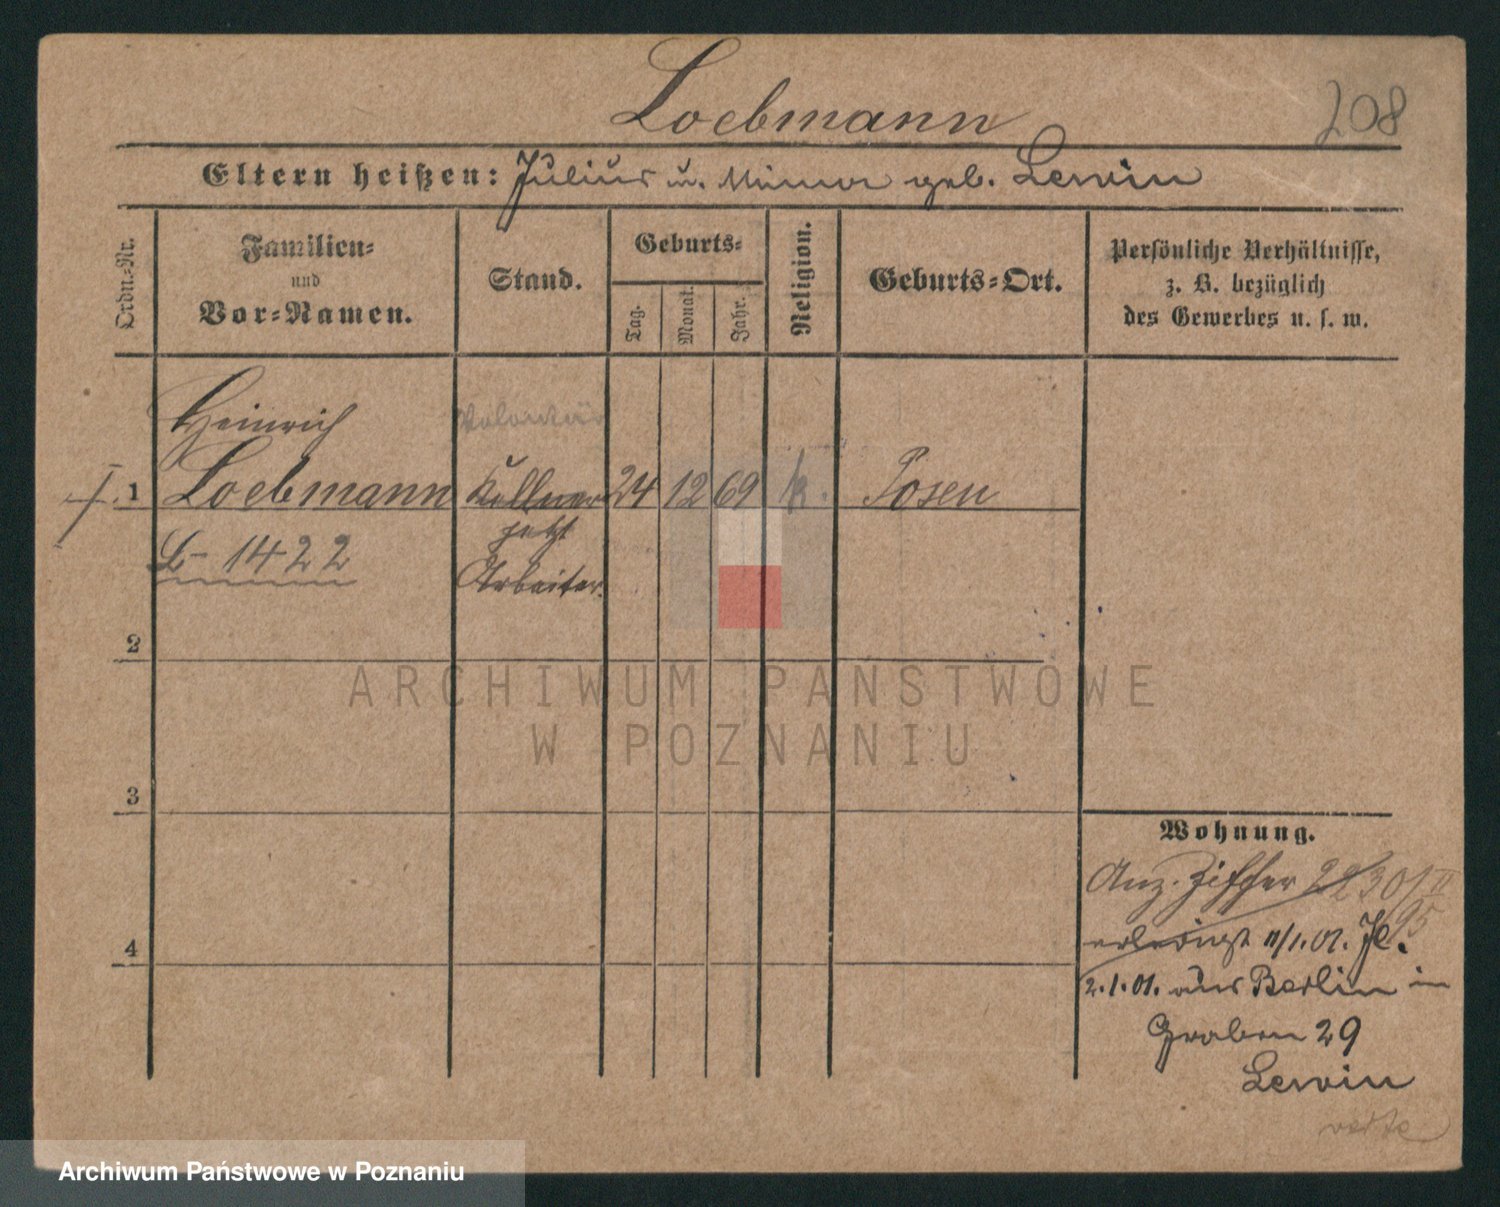 Loebmann
208
Eltern heißen: Julius u. Minna geb. Lewin
Ordn.-Nr.
Familien-
und
Vor-Namen.
Stand.
Geburts-
Tag.
Monat.
Jahr.
Religion.
Geburts-Ort.
Persönliche Verhältnisse,
z. B. bezüglich
des Gewerbes u. s. w.
Heinrich
Volontär
1 Loebmann Kellner 24 12 69 k. Posen
jetzt
L- 1422
Arbeiter.
2
3
4
Wohnung.
Anz. Ziffer 2230/II
95
erledigt 11/1.01. Jl.
2.1.01. aus Berlin in
Graben 29
Lewin
verte
ARCHIWUM PAŃSTWOWE
W POZNANIU
Archiwum Państwowe w Poznaniu